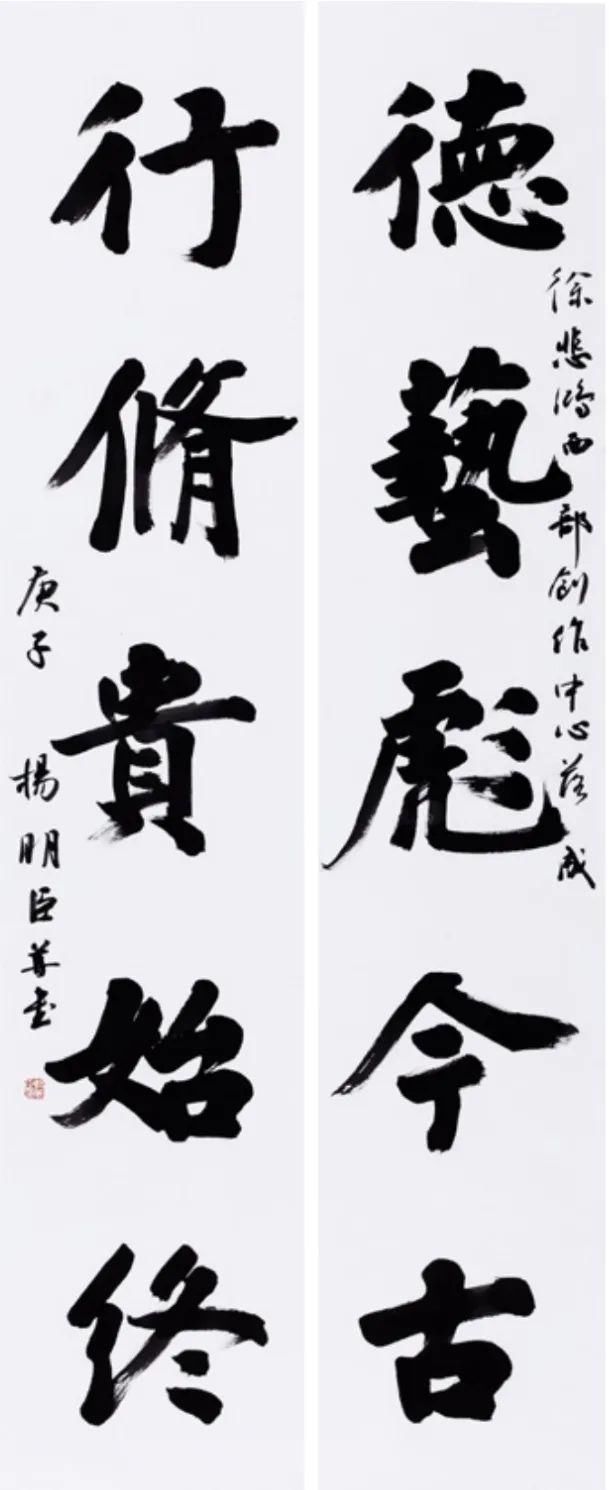 德藝彪今古
徐悲鸿西部創作中心落成
行脩貴始终
庚子 楊明臣并书